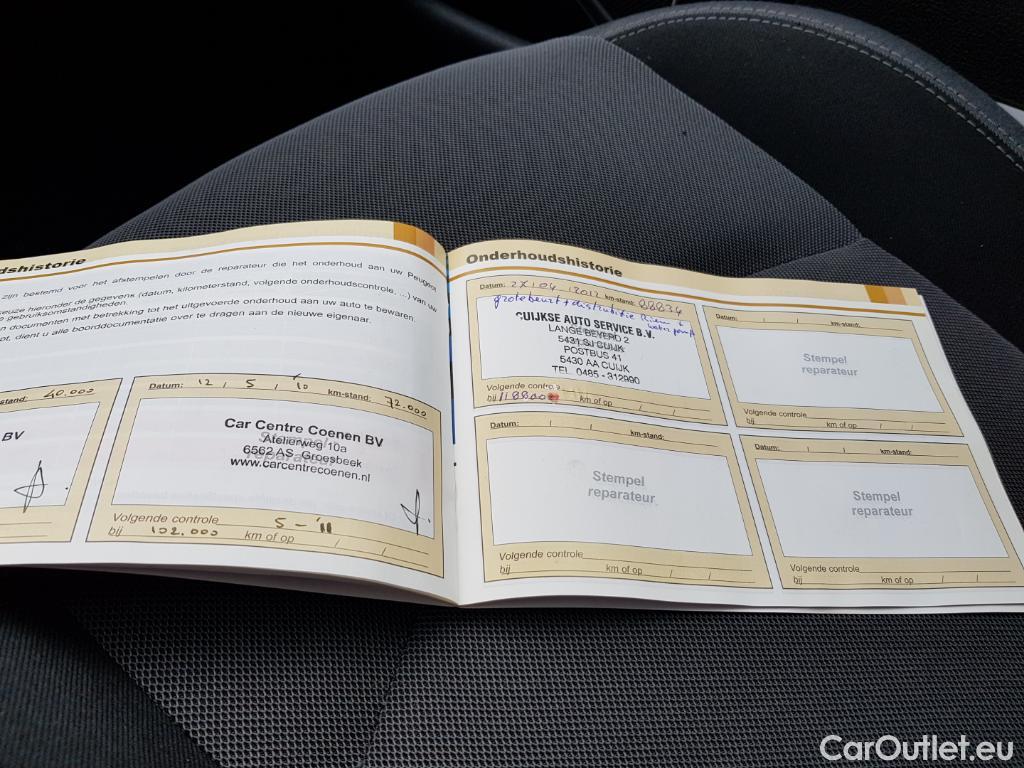 dshistorie
zijn bestemd voor het afstempelen door de reparateur die het onderhoud aan uw Peugeot
keuze hieronder de gegevens (datum, kilometerstand, volgende onderhoudscontrole, ...) van uw
gebruiksomstandigheden.
n documenten met betrekking tot het uitgevoerde onderhoud aan uw auto te bewaren.
ot, dient u alle boorddocumentatie over te dragen aan de nieuwe eigenaar.
stand: 40.000
BV
Datum: 12 / 5 / '10 km-stand: 72.000
Stempel
reparateur
Car Centre Coenen BV
Atelierweg 10a
6562 AS Groesbeek
www.carcentrecoenen.nl
Volgende controle 5 - '11
bij 102.000 km of op / /
Onderhoudshistorie
Datum: 2x/04-/2012 km-stand: 88834
grotebeurt + distributie riem +
waterpomp
CUIJKSE AUTO SERVICE B.V.
LANGE BEYERD 2
5431 SJ CUIJK
POSTBUS 41
5430 AA CUIJK
TEL. 0485 - 312990
Volgende controle
bij 118800 km of op / /
Datum: / / km-stand:
Stempel
reparateur
Volgende controle
bij km of op / /
Datum: / / km-stand:
Stempel
reparateur
Volgende controle
bij km of op / /
Datum: / / km-stand:
Stempel
reparateur
Volgende controle
bij km of op / /
CarOutlet.eu